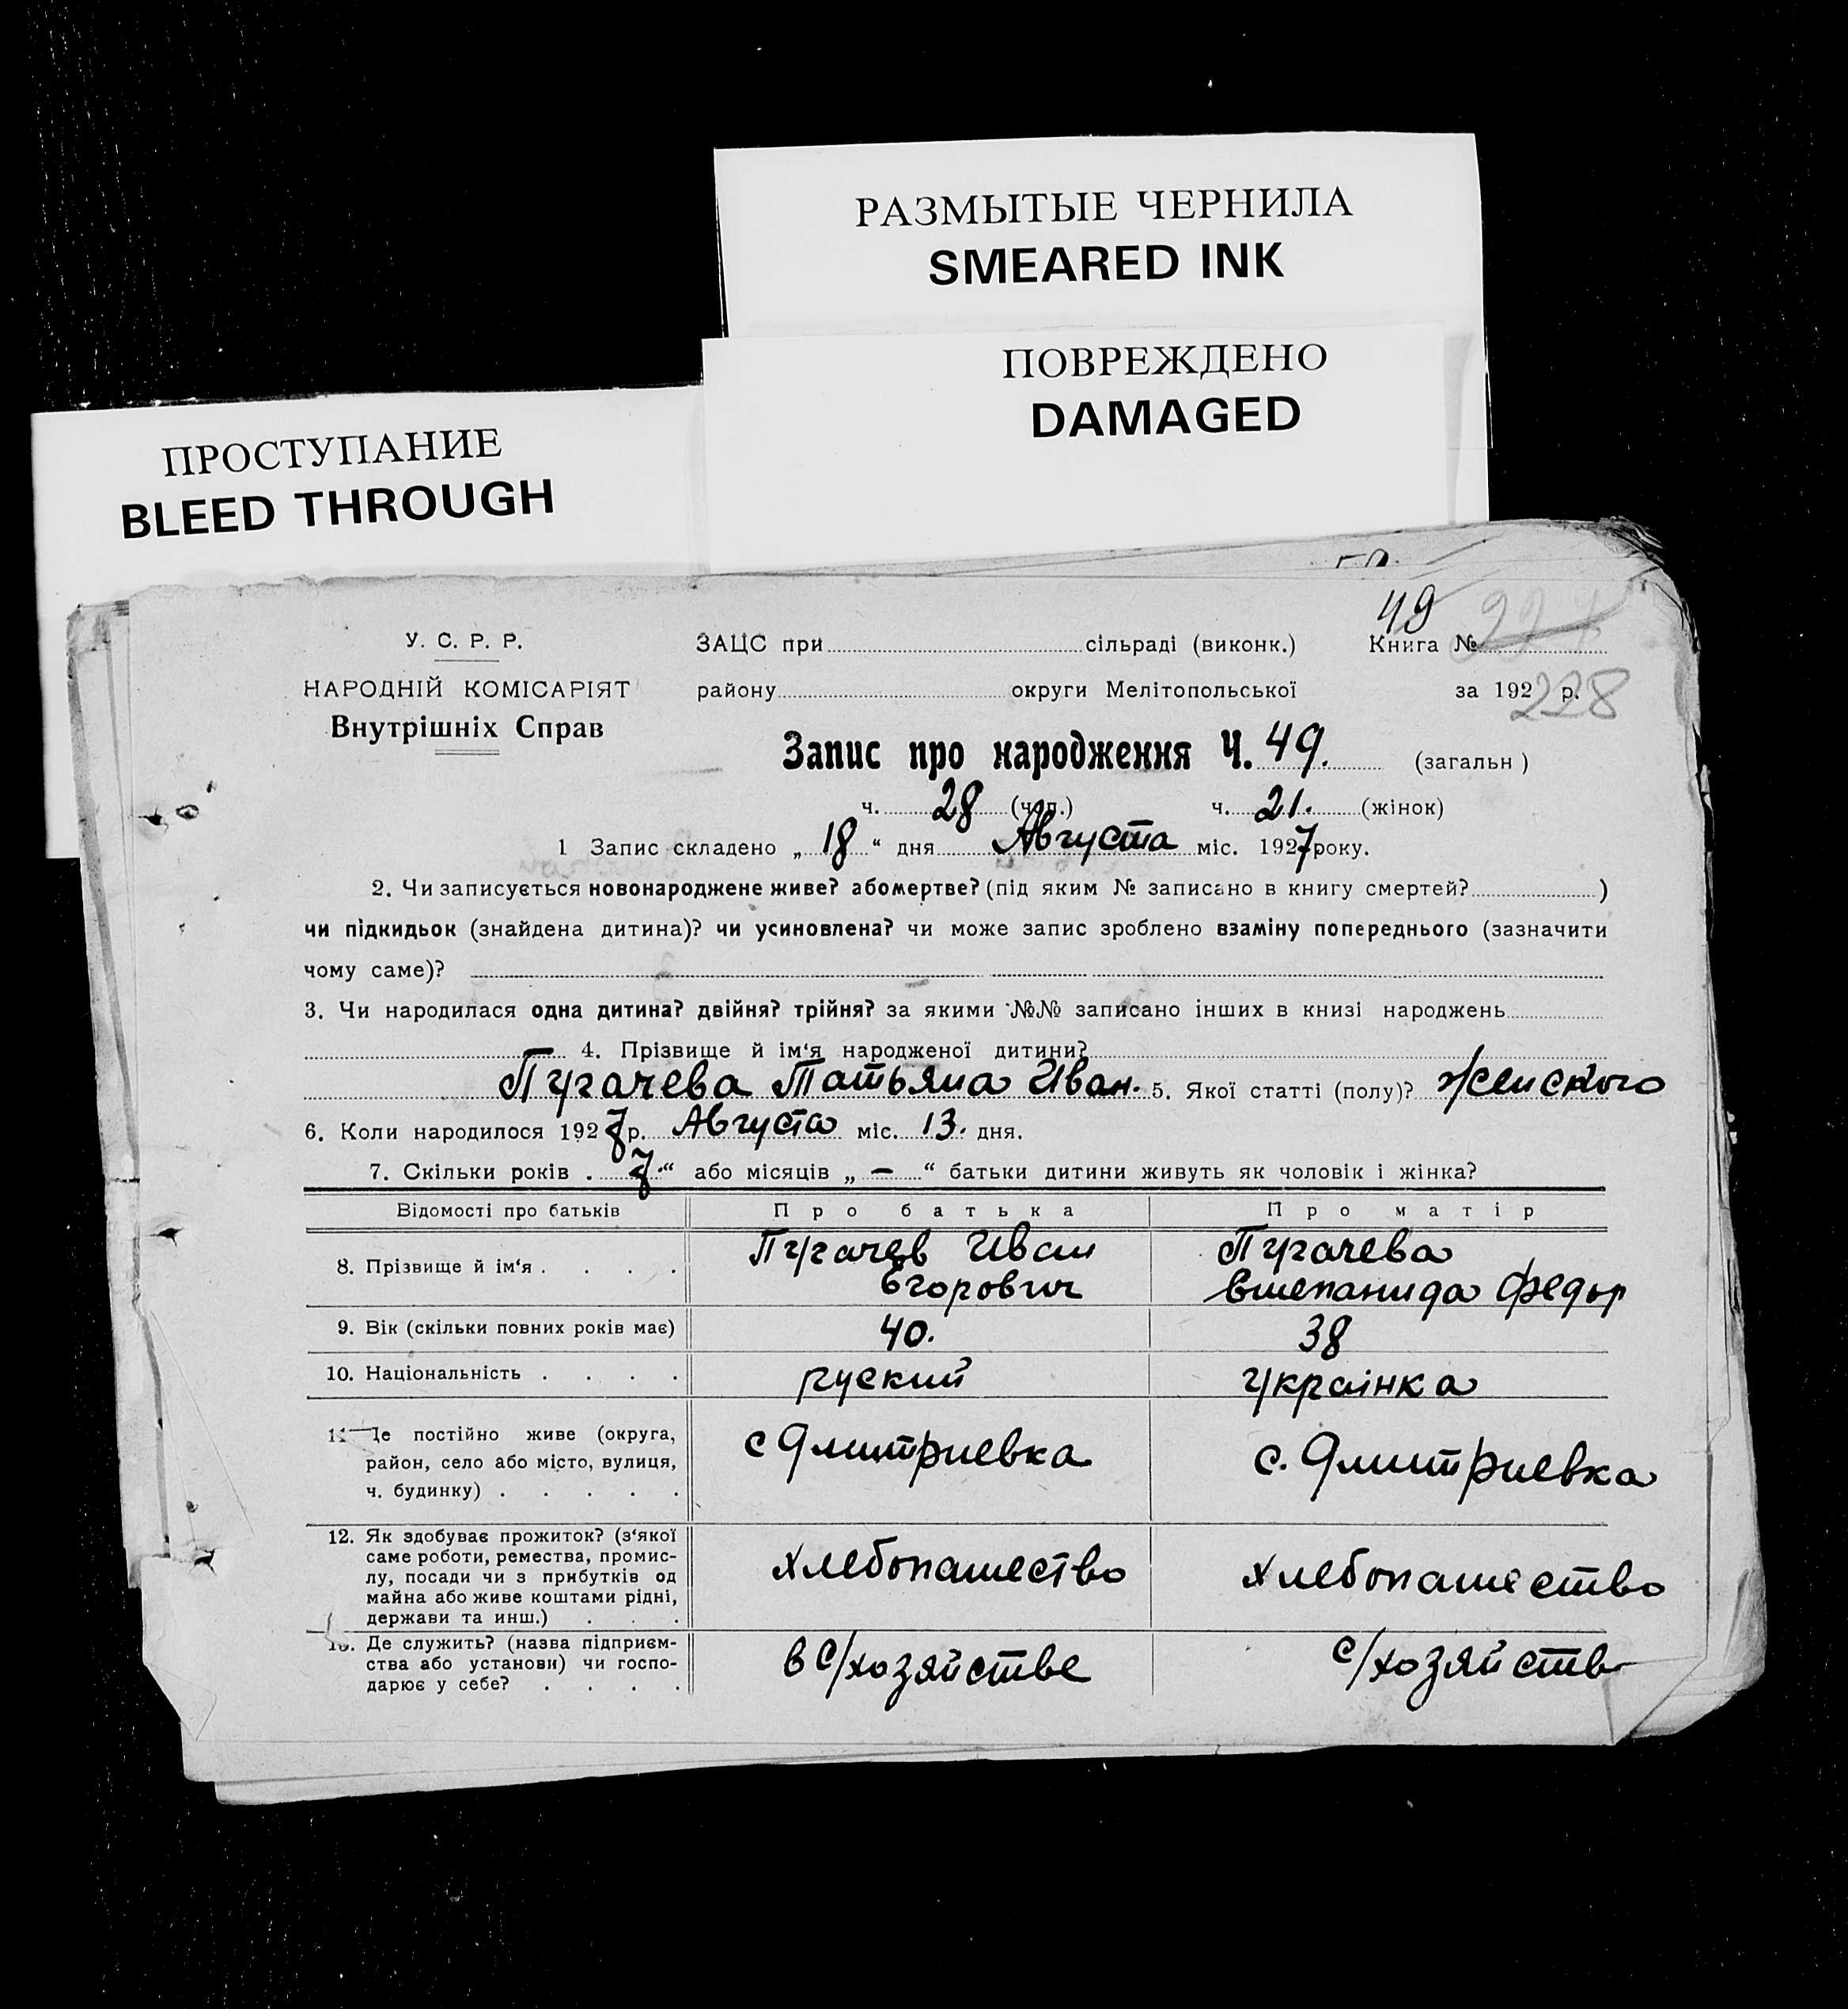 РАЗМЫТЫЕ ЧЕРНИЛА
SMEARED INK
ПОВРЕЖДЕНО
DAMAGED
ПРОСТУПАНИЕ
BLEED THROUGH
49
У. С. Р. Р.
ЗАЦС при сільраді (виконк.) Книга №
НАРОДНІЙ КОМІСАРІЯТ
району округи Мелітопольської за 192 р.
228
Внутрішніх Справ
Запис про народження Ч. 49. (загальн )
ч. 28 (чол.) ч. 21. (жінок)
1 Запис складено „ 18 “ дня Августа міс. 1927 року.
2. Чи записується новонароджене живе? або мертве? (під яким № записано в книгу смертей? )
чи підкидьок (знайдена дитина)? чи усиновлена? чи може запис зроблено взаміну попереднього (зазначити
чому саме)?
3. Чи народилася одна дитина? двійня? трійня? за якими №№ записано інших в книзі народжень
4. Прізвище й ім‘я народженої дитини?
Пугачева Татьяна Иван. 5. Якої статті (полу)? женского
6. Коли народилося 1927 р. Августа міс. 13. дня.
7. Скільки років . 7. “ або місяців „ — “ батьки дитини живуть як чоловік і жінка?
Відомості про батьків Про батька Про матір
8. Прізвище й ім‘я . . . . Пугачев Иван Егорович Пугачева Степанида Федор
9. Вік (скільки повних років має) 40. 38
10. Національність . . . . руский українка
11 Де постійно живе (округа,
район, село або місто, вулиця,
ч. будинку) . . . . .
с Дмитриевка с. Дмитриевка
12. Як здобуває прожиток? (з‘якої
саме роботи, ремества, промис-
лу, посади чи з прибутків од
майна або живе коштами рідні,
держави та инш.) . . .
хлебопашество хлебопашество
13. Де служить? (назва підприєм-
ства або установи) чи госпо-
дарює у себе? . . . .
в с/хозяйстве с/хозяйств